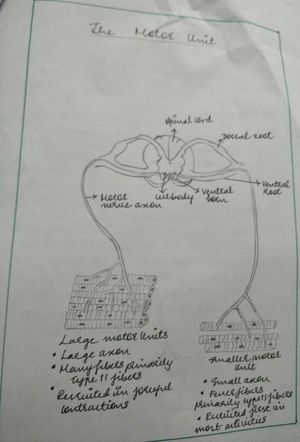 The Motor Unit
Spinal cord
Dorsal root
Motor
nerve axon
cell body
Ventral
horn
Ventral
Root
Large motor units
• Large axon
• Many fibers primarily
type II fibers
• Recruited in forceful
contractions
Smaller motor
unit
• Small axon
• Fewer fibers
primarily type II fibers
• Recruited first in
most activities